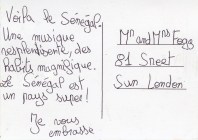 Voilà le Sénégal.
Une musique
resplendissante, des
habits magnifique.
Le Sénégal est
un pays super!
Je vous
embrasse
Mr and Mrs Fogg
81 Sneet
Sun London